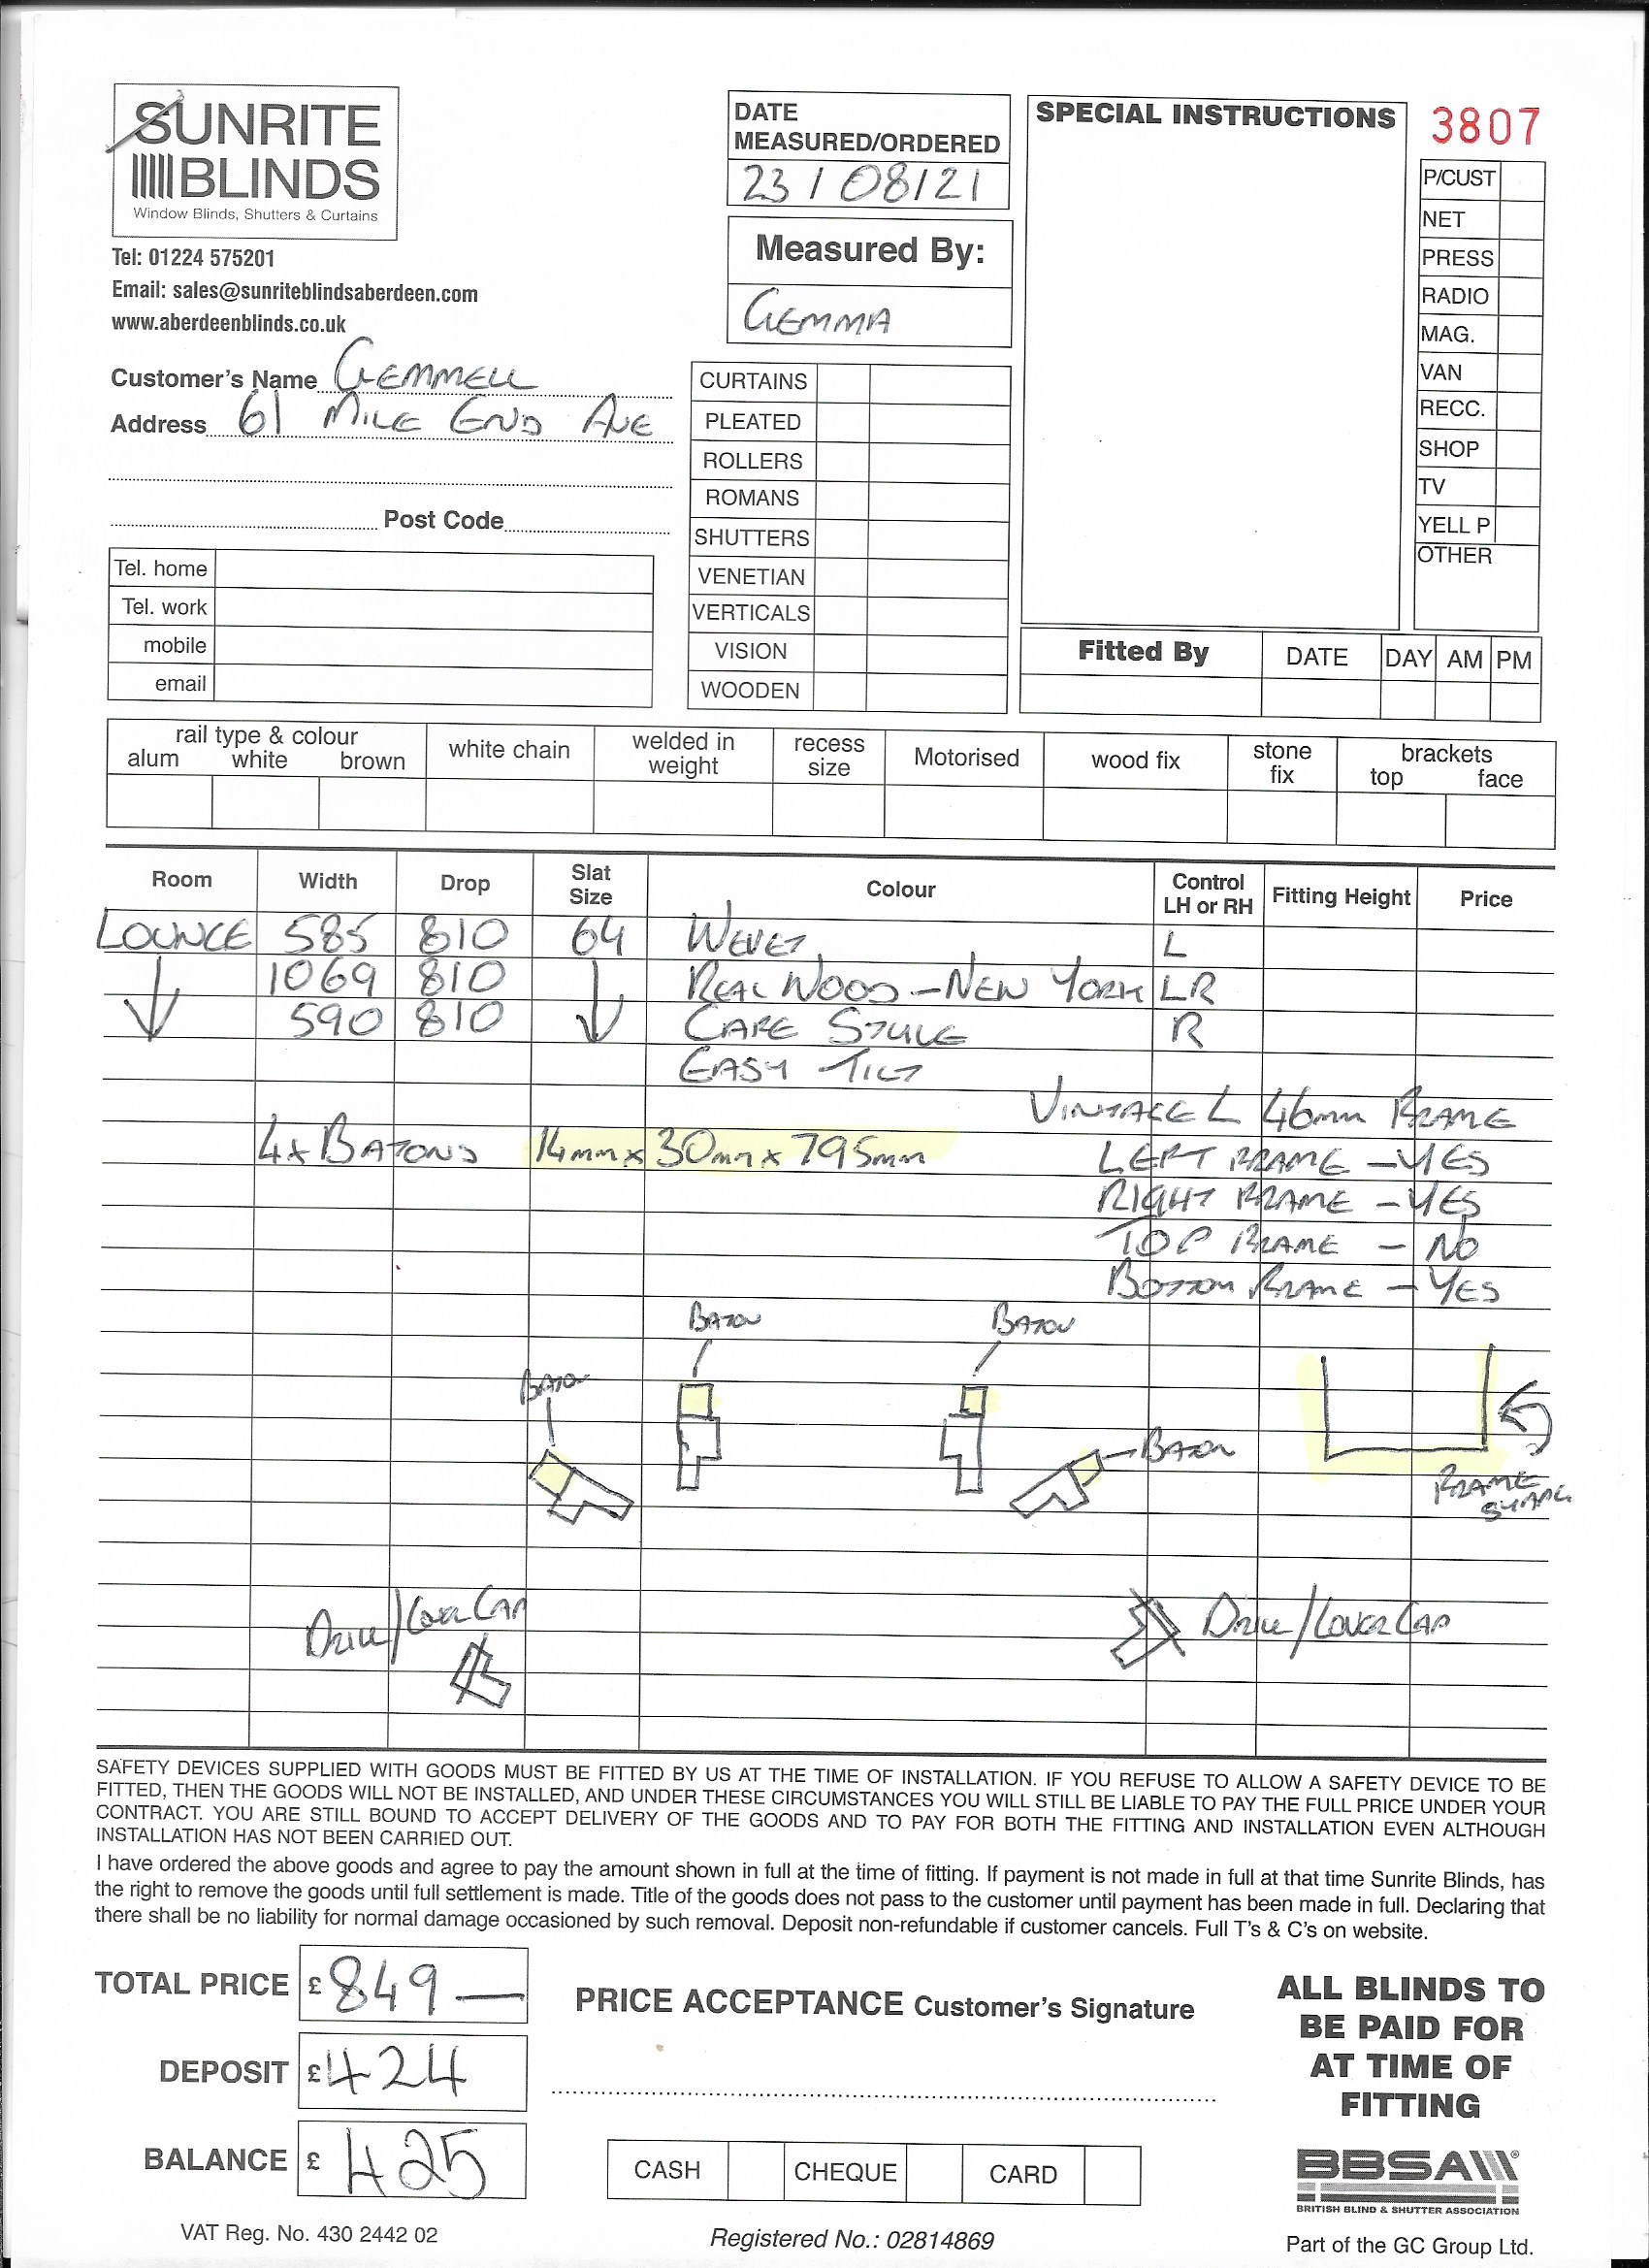 SUNRITE
BLINDS
Window Blinds, Shutters & Curtains
Tel: 01224 575201
Email: sales@sunriteblindsaberdeen.com
www.aberdeenblinds.co.uk
Customer's Name GEMMELL
Address 61 MILE END AVE
Post Code
Tel. home
Tel. work
mobile
email
DATE
MEASURED/ORDERED
23/08/21
Measured By:
GEMMA
CURTAINS
PLEATED
ROLLERS
ROMANS
SHUTTERS
VENETIAN
VERTICALS
VISION
WOODEN
SPECIAL INSTRUCTIONS
3807
P/CUST
NET
PRESS
RADIO
MAG.
VAN
RECC.
SHOP
TV
YELL P
OTHER
Fitted By DATE DAY AM PM
rail type & colour
alum white brown
white chain
welded in
weight
recess
size
Motorised
wood fix
stone
fix
brackets
top face
Room Width Drop Slat Size Colour Control LH or RH Fitting Height Price
LOUNGE 585 810 64 WEVET L
1069 810 REAL WOOD - NEW YORK LR
590 810 CAFE STYLE R
EASY TILT
VINTAGE L 46mm FRAME
4x BATONS 14mm x 30mm x 795mm
LEFT FRAME - YES
RIGHT FRAME - YES
TOP FRAME - NO
BOTTOM FRAME - YES
BATON
BATON
BATON
BATON
FRAME
SHAPE
DRILL/COVER CAP
DRILL/COVER CAP
SAFETY DEVICES SUPPLIED WITH GOODS MUST BE FITTED BY US AT THE TIME OF INSTALLATION. IF YOU REFUSE TO ALLOW A SAFETY DEVICE TO BE
FITTED, THEN THE GOODS WILL NOT BE INSTALLED, AND UNDER THESE CIRCUMSTANCES YOU WILL STILL BE LIABLE TO PAY THE FULL PRICE UNDER YOUR
CONTRACT. YOU ARE STILL BOUND TO ACCEPT DELIVERY OF THE GOODS AND TO PAY FOR BOTH THE FITTING AND INSTALLATION EVEN ALTHOUGH
INSTALLATION HAS NOT BEEN CARRIED OUT.
I have ordered the above goods and agree to pay the amount shown in full at the time of fitting. If payment is not made in full at that time Sunrite Blinds, has
the right to remove the goods until full settlement is made. Title of the goods does not pass to the customer until payment has been made in full. Declaring that
there shall be no liability for normal damage occasioned by such removal. Deposit non-refundable if customer cancels. Full T's & C's on website.
TOTAL PRICE £ 849 —
DEPOSIT £ 424
BALANCE £ 425
PRICE ACCEPTANCE Customer's Signature
CASH CHEQUE CARD
ALL BLINDS TO
BE PAID FOR
AT TIME OF
FITTING
BBSA
BRITISH BLIND & SHUTTER ASSOCIATION
VAT Reg. No. 430 2442 02
Registered No.: 02814869
Part of the GC Group Ltd.